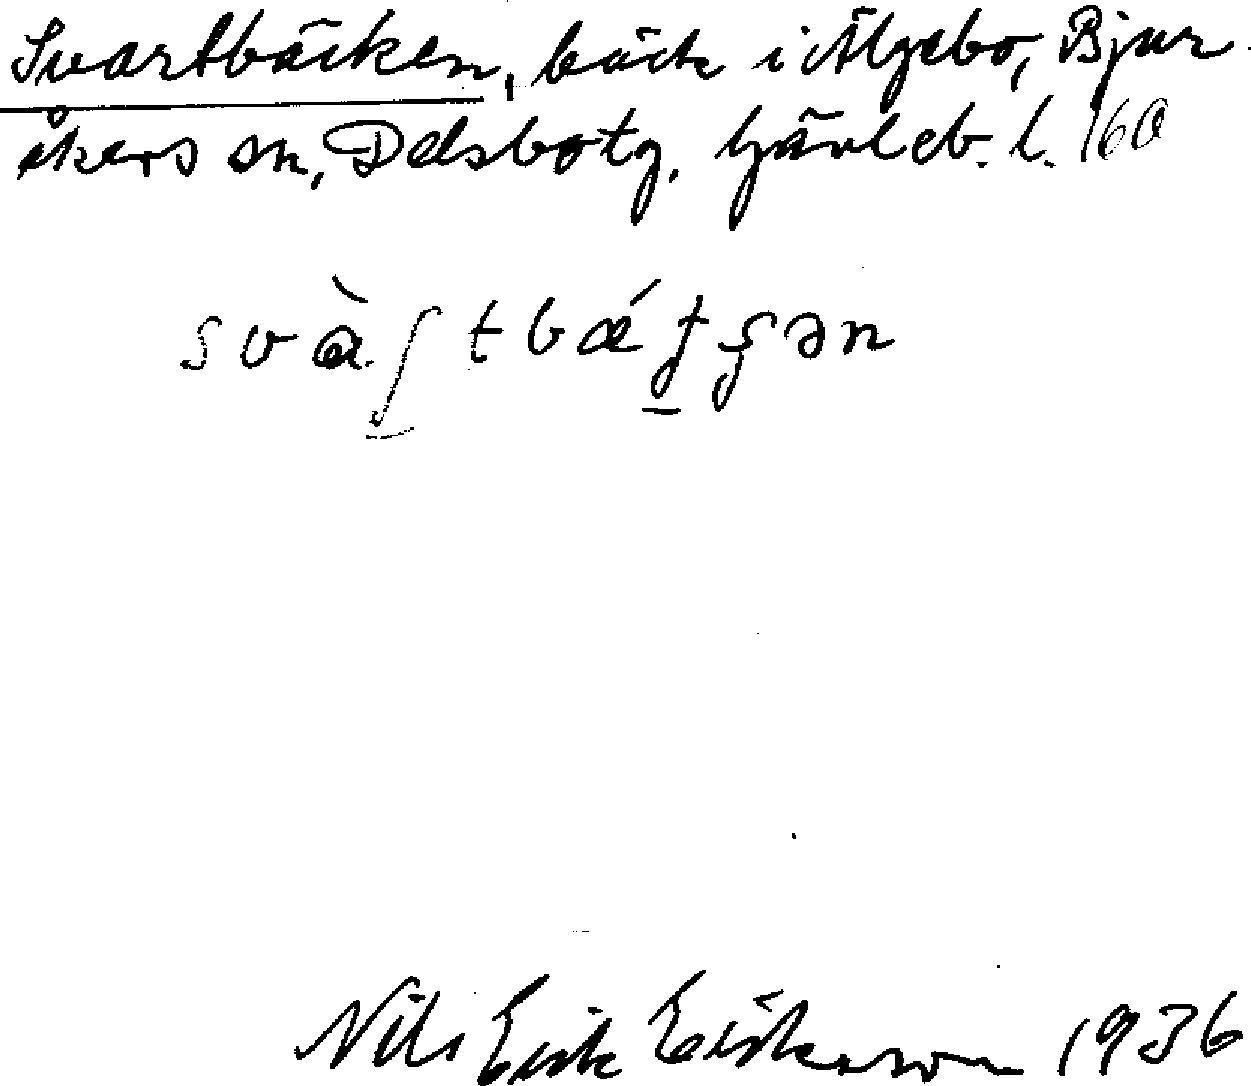 Svartbäcken, bäck i Älgebo, Bjur-
åkers sn, Delsbo tg, Gävleb. l. 160
svàʃtbǽtʂən
Nils Erik Eriksson 1936